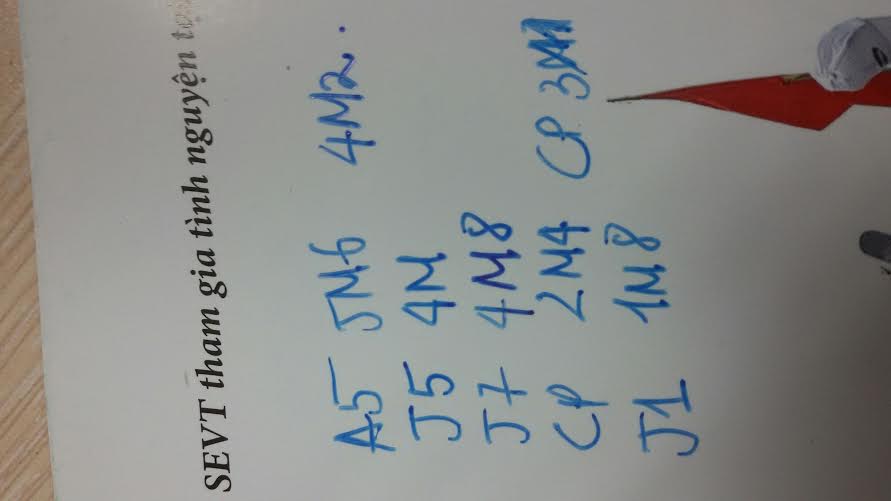 SEVT tham gia tình nguyện
A5 5M6 4M2.
J5 4M
J7 4M8
CP 2M4 CP
J1 1M8